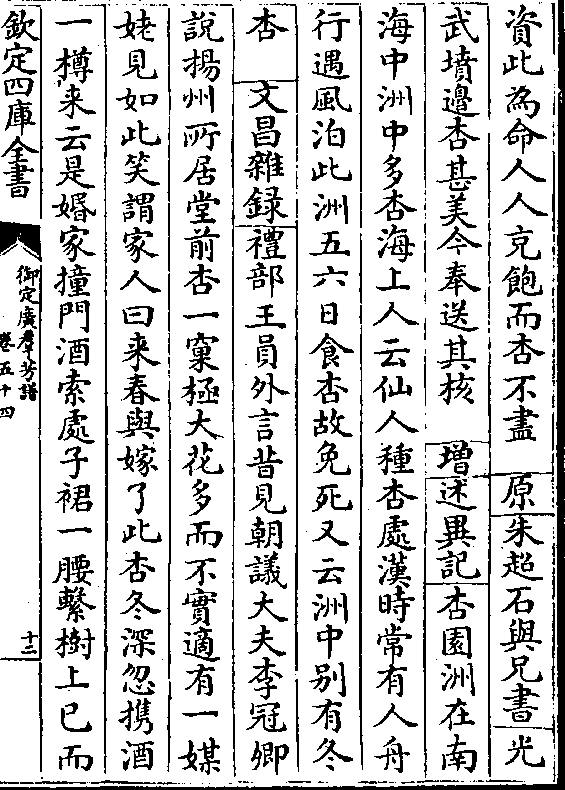 資此為命人人充飽而杏不盡　原朱超石與兄書光
武墳邊杏甚美今奉送其核　增述異記杏園洲在南
海中洲中多杏海上人云仙人種杏處漢時常有人舟
行遇風泊此洲五六日食杏故免死又云洲中别有冬
杏　文昌雜録禮部王員外言昔見朝議大夫李冠卿
說揚州所居堂前杏一窠極大花多而不實適有一媒
姥見如此笑謂家人曰来春與嫁了此杏冬深忽攜酒
一樽来云是婚家撞門酒索處子裙一腰繫樹上已而
欽定四庫全書
御定廣羣芳譜
卷五十四
十二